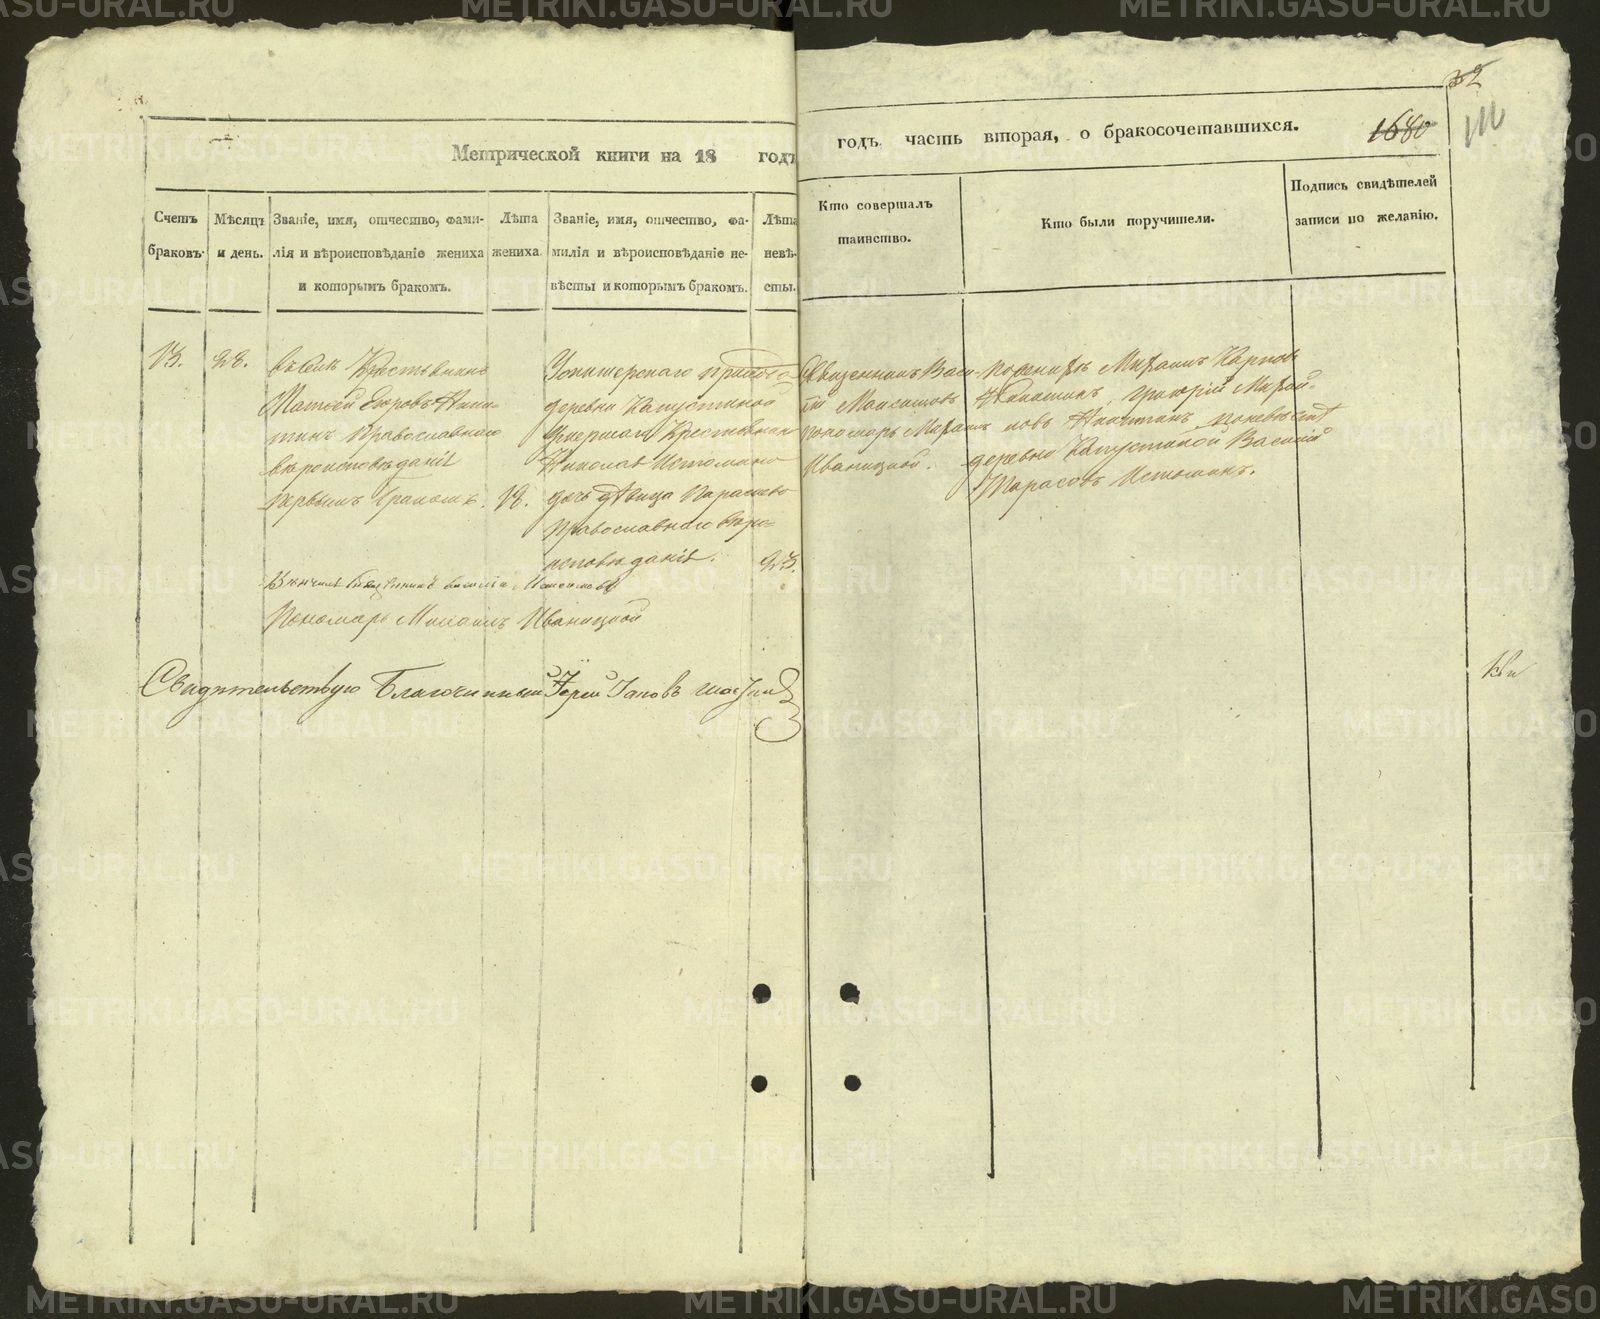 Метрической книги на 18 годъ
годъ часть вторая, о бракосочетавшихся.
1680
Счетъ браковъ.
Мѣсяцъ и день.
Званіе, имя, отчество, фами-
лія и вѣроисповѣданіе жениха
и которымъ бракомъ.
Лѣта жениха
Званіе, имя, отчество, фа-
милія и вѣроисповѣданіе не-
вѣсты и которымъ бракомъ.
Лѣта невѣ-
сты.
Кто совершалъ
таинство.
Кто были поручители.
Подпись свидѣтелей
записи по желанію.
13.
28.
Крестьянинъ
Матѳей Егоровъ Ники-
тинъ Православнаго
вѣроисповѣданія
первымъ бракомъ.
18.
деревни Капустиной
умершаго Крестьянина
Николая Истомина
дочь дѣвица Парасковья
Православнаго вѣро-
исповѣданія.
23.
Священникъ Васи-
лій
пономарь Михаилъ
Иваницкой.
по женихѣ Михаилъ Карповъ
Никитинъ, Григорій Михай-
ловъ Никитинъ, по невѣстѣ
деревни Капустиной Василій
Тарасовъ Истоминъ.
Вѣнчалъ Священникъ Василій
Пономарь Михаилъ Иваницкой
Свидѣтельствую Благочинный Іерей Іаковъ
METRIKI.GASO-URAL.RU